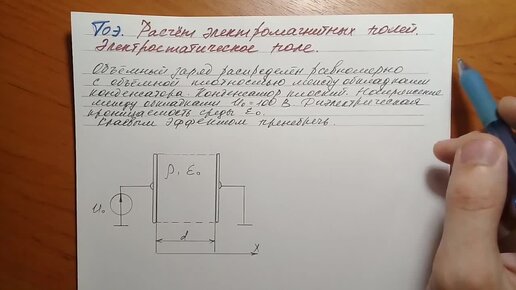 ТОЭ. Расчёт электромагнитных полей.
Электростатическое поле.
Объёмный заряд распределён равномерно
с объёмной плотностью между обкладками
конденсатора. Конденсатор плоский. Напряжение
между обкладками U₀ = 100 В. Диэлектрическая
проницаемость среды ε₀.
Краевым эффектом пренебречь.
ρ, ε₀
U₀
d
x